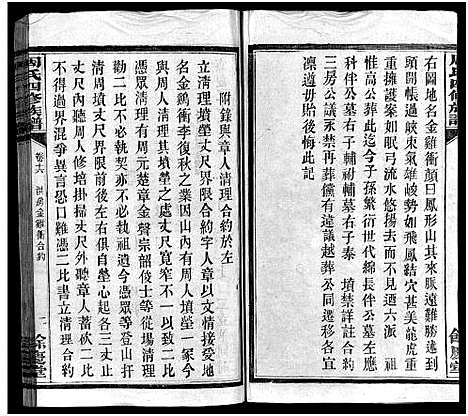 右圖地名金雞衝顏曰鳳形山其來脈逶迤到
頭開帳過峽東氣雄岐勢如飛鳳結穴甚美龍虎重
重擁護案如眠弓流水悠揚去而不見迺六派祖
惟高公葬此迄今子孫繁衍世代綿長伴公墓左應
科伴公墓右子輔祔葬墓右子泰 墳禁詳註合約
三房公議永禁再葬儻有違議越葬公同遷移各宜
凜遵毋貽後悔此記
附錄與章人清理合約於左
立清理墳塋丈尺界限合約字人章文情接受葛地
名金鷄衝李復秋之業因山內有周人墳塋一家今
與周人清理其墳塋之處丈尺寬窄不一以致二比
憑眾清理於周元慶童金聲宗韶伎士等從場清理
勸二比不必執祖遺今憑眾等登山扦
立契丈尺界限前後左右俱自塋心起各三丈
丈尺外聽章人蓄砍二比
不得過界混爭異言恐口難憑二比書立清理合約
周氏四修族譜
卷十六
金雞衝合約
二
餘慶堂
周氏四修族譜
餘慶堂